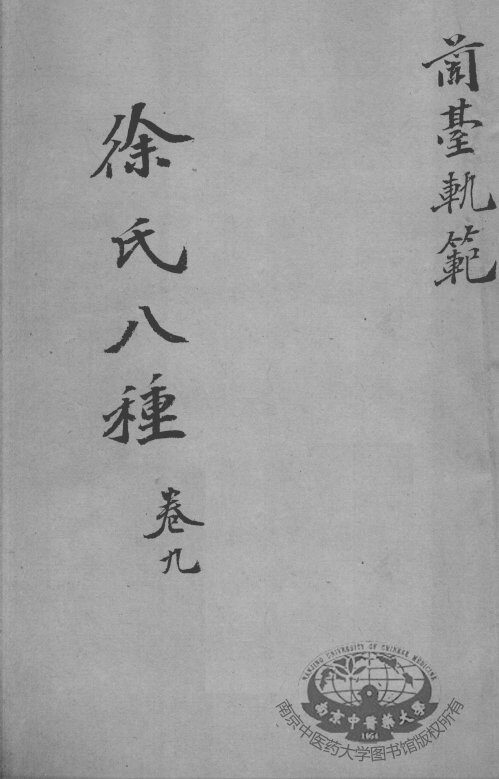 蘭臺軌範
徐氏八種
卷九
NANJING UNIVERSITY OF CHINESE MEDICINE
南京中醫藥大學
1954
南京中医药大学图书馆版权所有